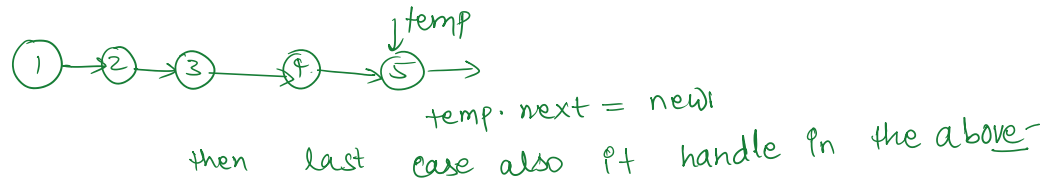 temp
1 2 3 4 5
temp. next = new1
then last case also it handle in the above